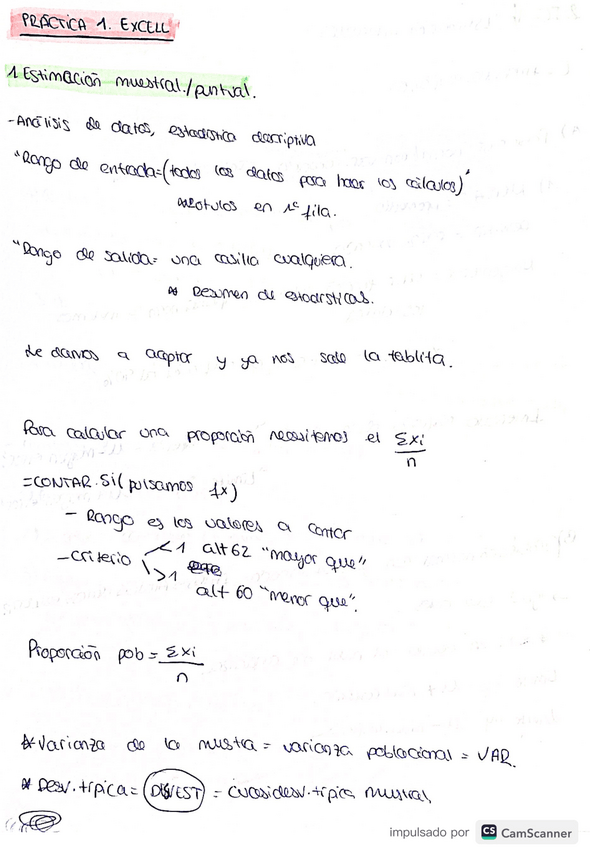 PRÁCTICA 1. EXCELL
1 Estimación muestral/puntual.
- Análisis de datos, estadística descriptiva
"Rango de entrada=(todos los datos para hacer los cálculos)"
*Rótulos en 1º fila.
"Rango de salida= una casilla cualquiera.
* Resumen de estadísticas.
Le damos a aceptar y ya nos sale la tablita.
Para calcular una proporción necesitamos el Σxi
n
=CONTAR.SI(pulsamos fx)
- Rango es los valores a contar
- criterio <1 alt 62 "mayor que"
>1
alt 60 "menor que".
Proporción pob = Σxi
n
* Varianza de la muestra = varianza poblacional = VAR.
* Desv. típica = DESVEST = cuasidesv. típica muestral
impulsado por CS CamScanner